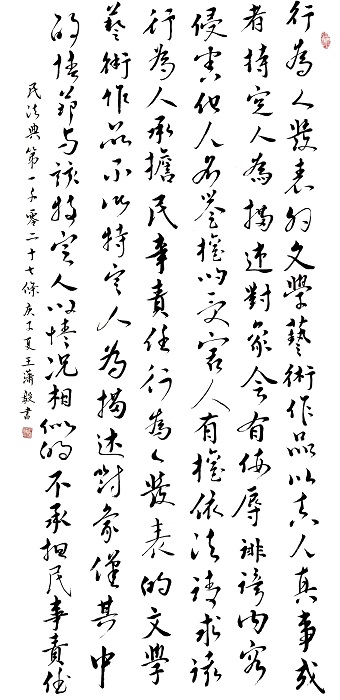 行為人發表的文學藝術作品以真人真事或
者特定人為描述對象含有侮辱誹謗内容
侵害他人名譽權的受害人有權依法請求該
行為人承擔民事責任行為人發表的文學
藝術作品不以特定人為描述對象僅其中
的情節与該特定人的情况相似的不承担民事責任
民法典第一千零二十七條庚子夏王書